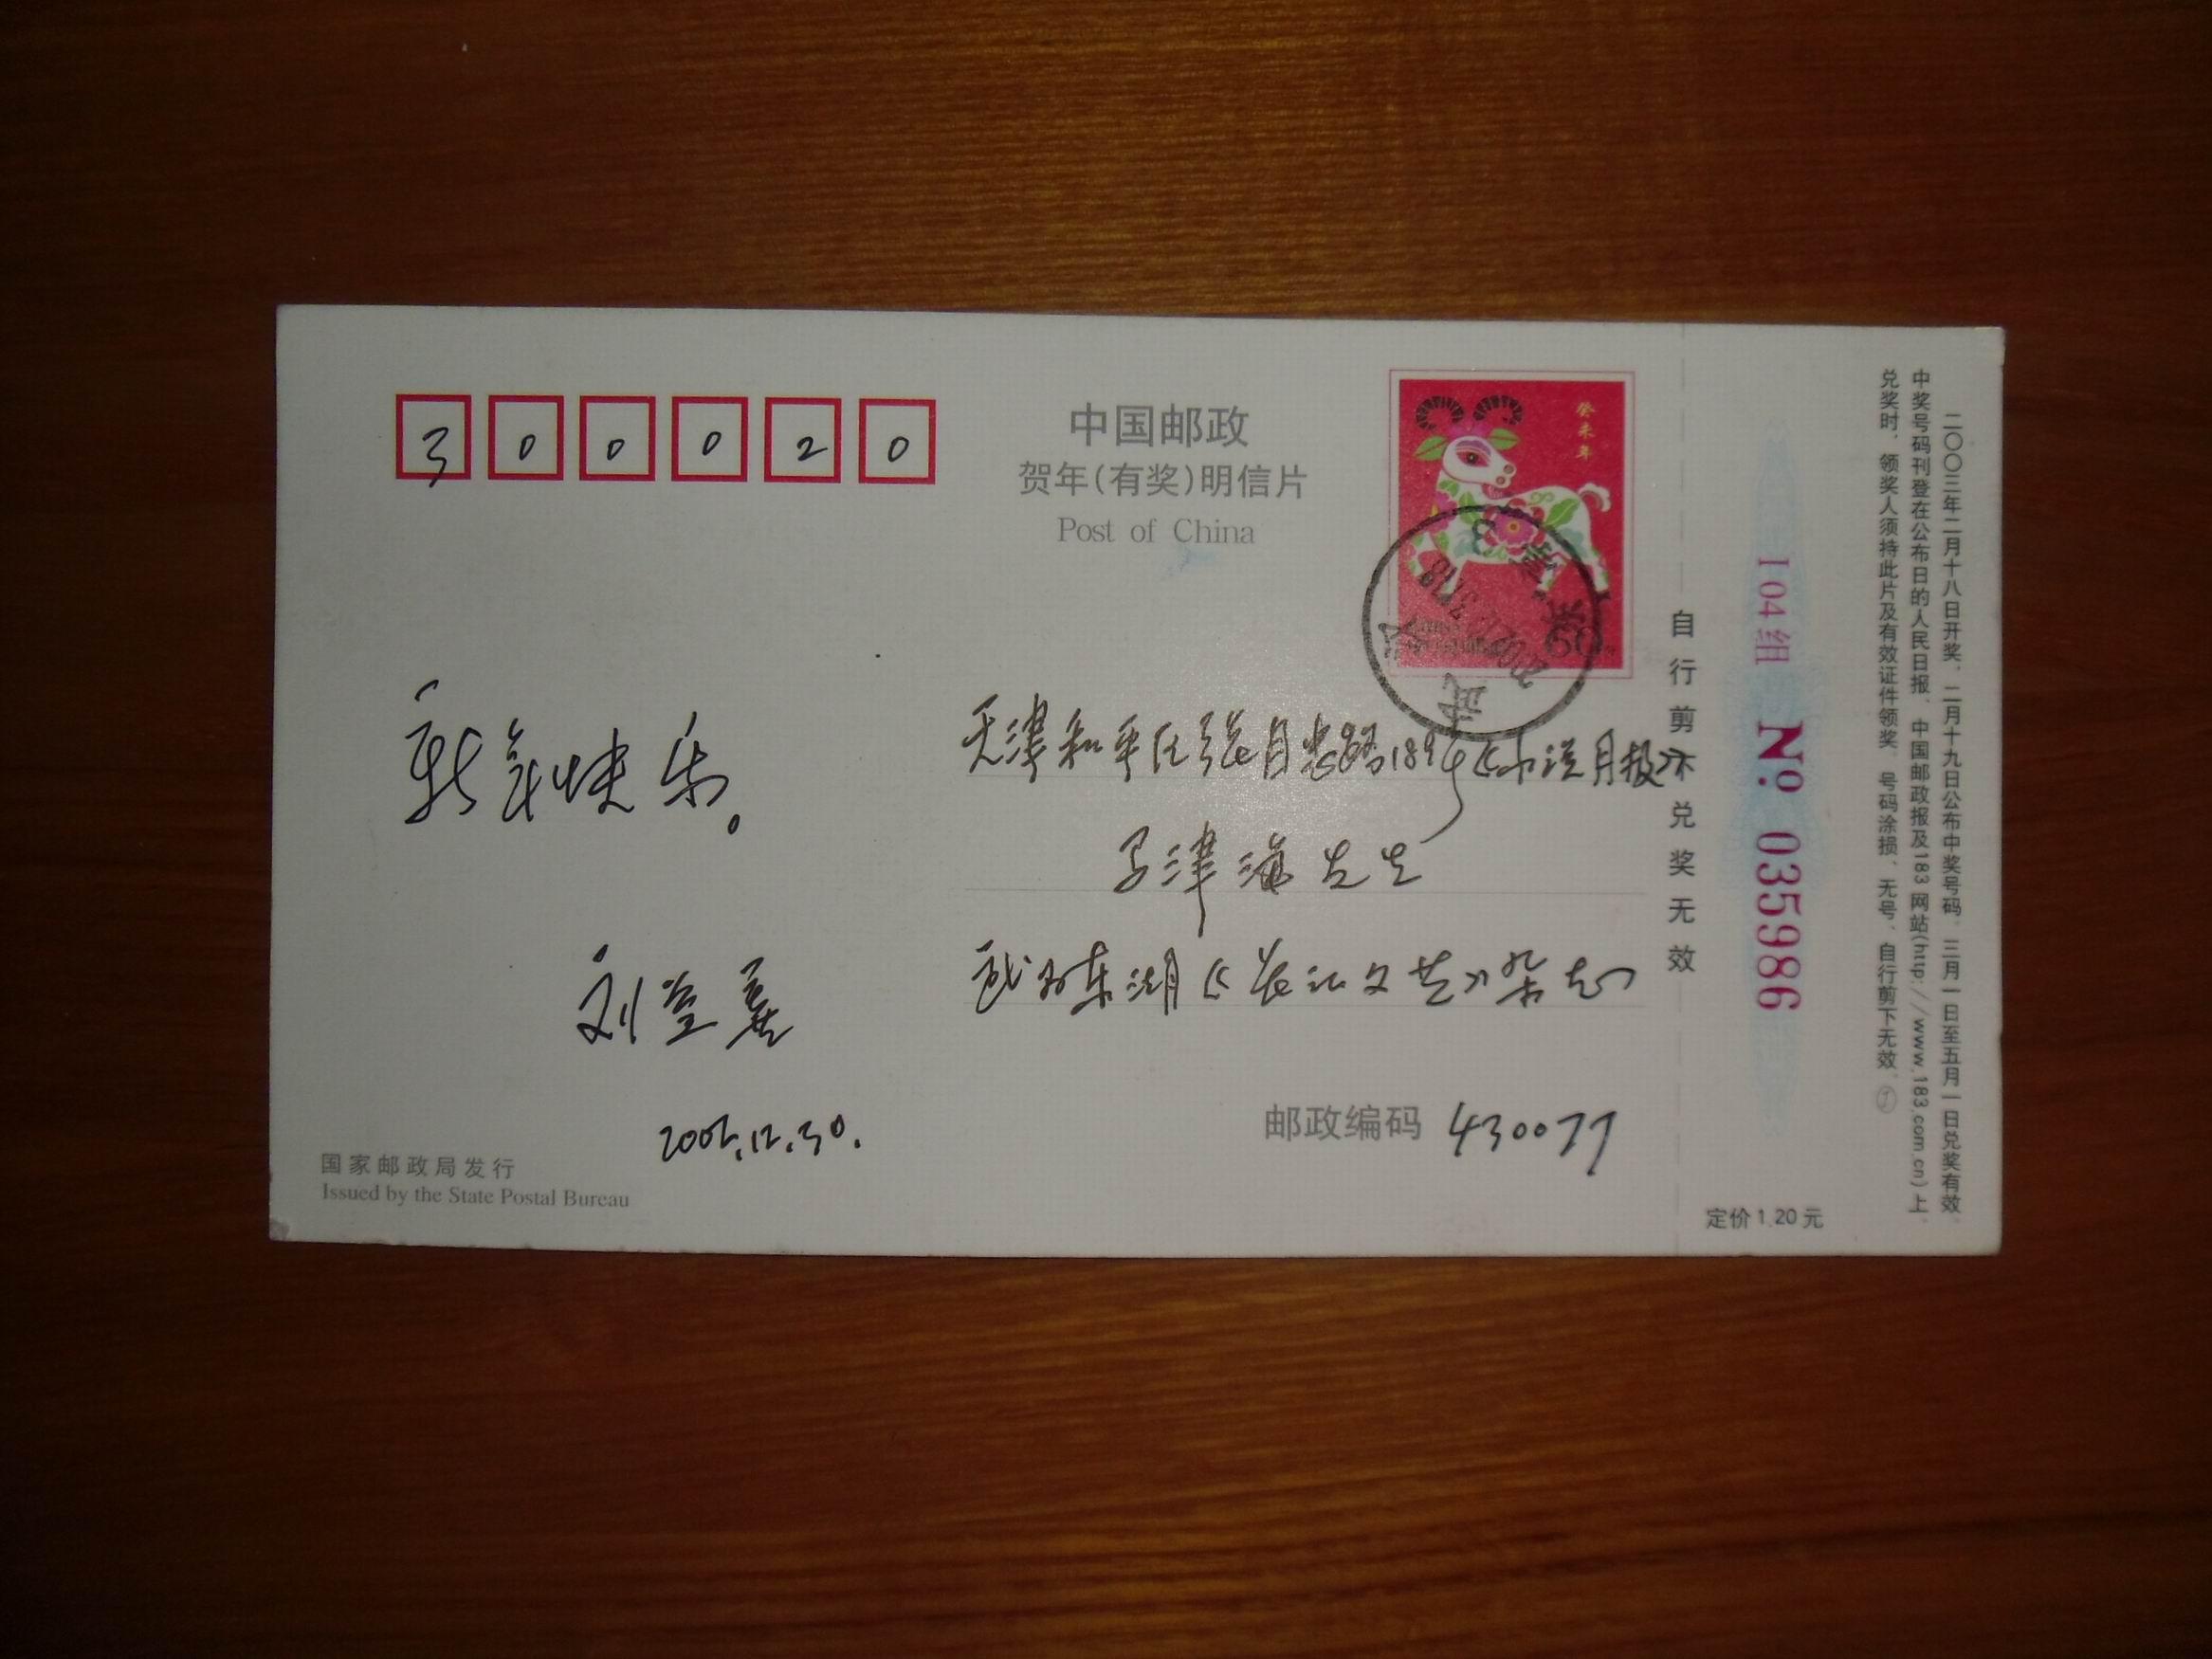 300020
中国邮政
贺年(有奖)明信片
Post of China
癸未年
新年快乐。
刘益善
2002.12.30.
天津和平区 路189号《小说月报》
马津海先生
武汉东湖《长江文艺》杂志
邮政编码 430077
国家邮政局发行
Issued by the State Postal Bureau
自行剪下兑奖无效
104组 No 035986
定价1.20元
二〇〇三年二月十八日开奖，二月十九日公布中奖号码，三月一日至五月一日兑奖有效，
中奖号码刊登在公布日的人民日报、中国邮政报及183网站(http://www.183.com.cn)上，
兑奖时，领奖人须持此片及有效证件领奖。号码涂损、无号、自行剪下无效。